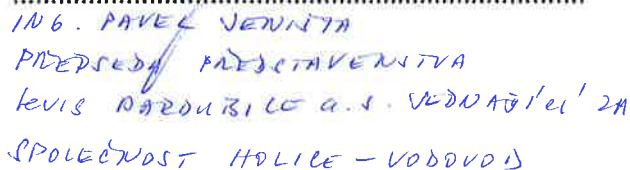 ING. PAVEL JENIŠTA
PŘEDSEDA PŘEDSTAVENSTVA
KEVIS PARDUBICE a.s. JEDNAJÍCÍ ZA
SPOLEČNOST HOLICE - VODOVOD